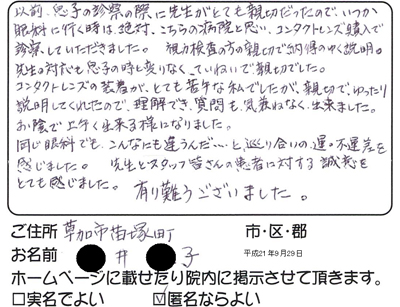 以前、息子の診察の際に先生がとても親切だったので、いつか
眼科に行く時は、絶対、こちらの病院と思い、コンタクトレンズ購入で
診察していただきました。視力検査の方の親切で納得のゆく説明。
先生の対応も息子の時と変りなく、ていねいで親切でした。
コンタクトレンズの装着が、とても苦手な私でしたが、親切で、ゆったり
説明してくれたので、理解でき、質問も、気兼ねなく、出来ました。
お陰で上手く出来る様になりました。
同じ眼科でも、こんなにも違うんだ…と巡り合いの、運・不運差を
感じました。先生とスタッフ皆さんの患者に対する誠意を
とても感じました。有り難うございました。
ご住所 草加市苗塚町 市・区・郡
お名前 井 子 平成21年9月29日
ホームページに載せたり院内に掲示させて頂きます。
□実名でよい ☑匿名ならよい